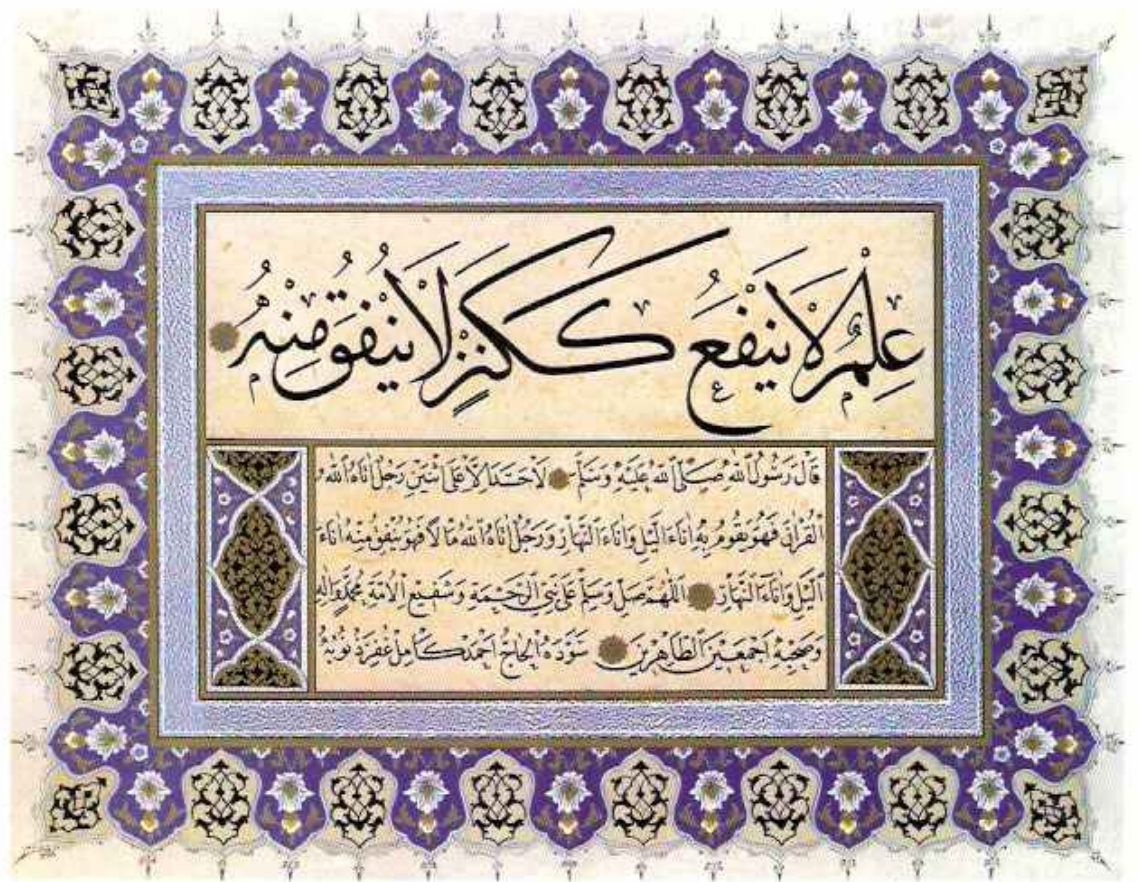 عِلْمٌ لَا يَنْفَعُ كَكَنْزٍ لَا يُنْفَقُ مِنْهُ
قَالَ رَسُولُ اللهِ صَلَّى اللهُ عَلَيْهِ وَسَلَّمَ لَا حَسَدَ إِلَّا عَلَى اثْنَيْنِ رَجُلٌ آتَاهُ اللهُ
الْقُرْآنَ فَهُوَ يَقُومُ بِهِ آنَاءَ الَّيْلِ وَآنَاءَ النَّهَارِ وَرَجُلٌ آتَاهُ اللهُ مَالًا فَهُوَ يُنْفِقُ مِنْهُ آنَاءَ
الَّيْلِ وَآنَاءَ النَّهَارِ اَللّٰهُمَّ صَلِّ وَسَلِّمْ عَلَى نَبِيِّ الرَّحْمَةِ وَشَفِيعِ الْأُمَّةِ مُحَمَّدٍ وَآلِهِ
وَصَحْبِهِ أَجْمَعِينَ الطَّاهِرِينَ سَوَّدَهُ الْحَاجُّ أَحْمَدُ كَامِلْ غُفِرَ ذُنُوبُهُ